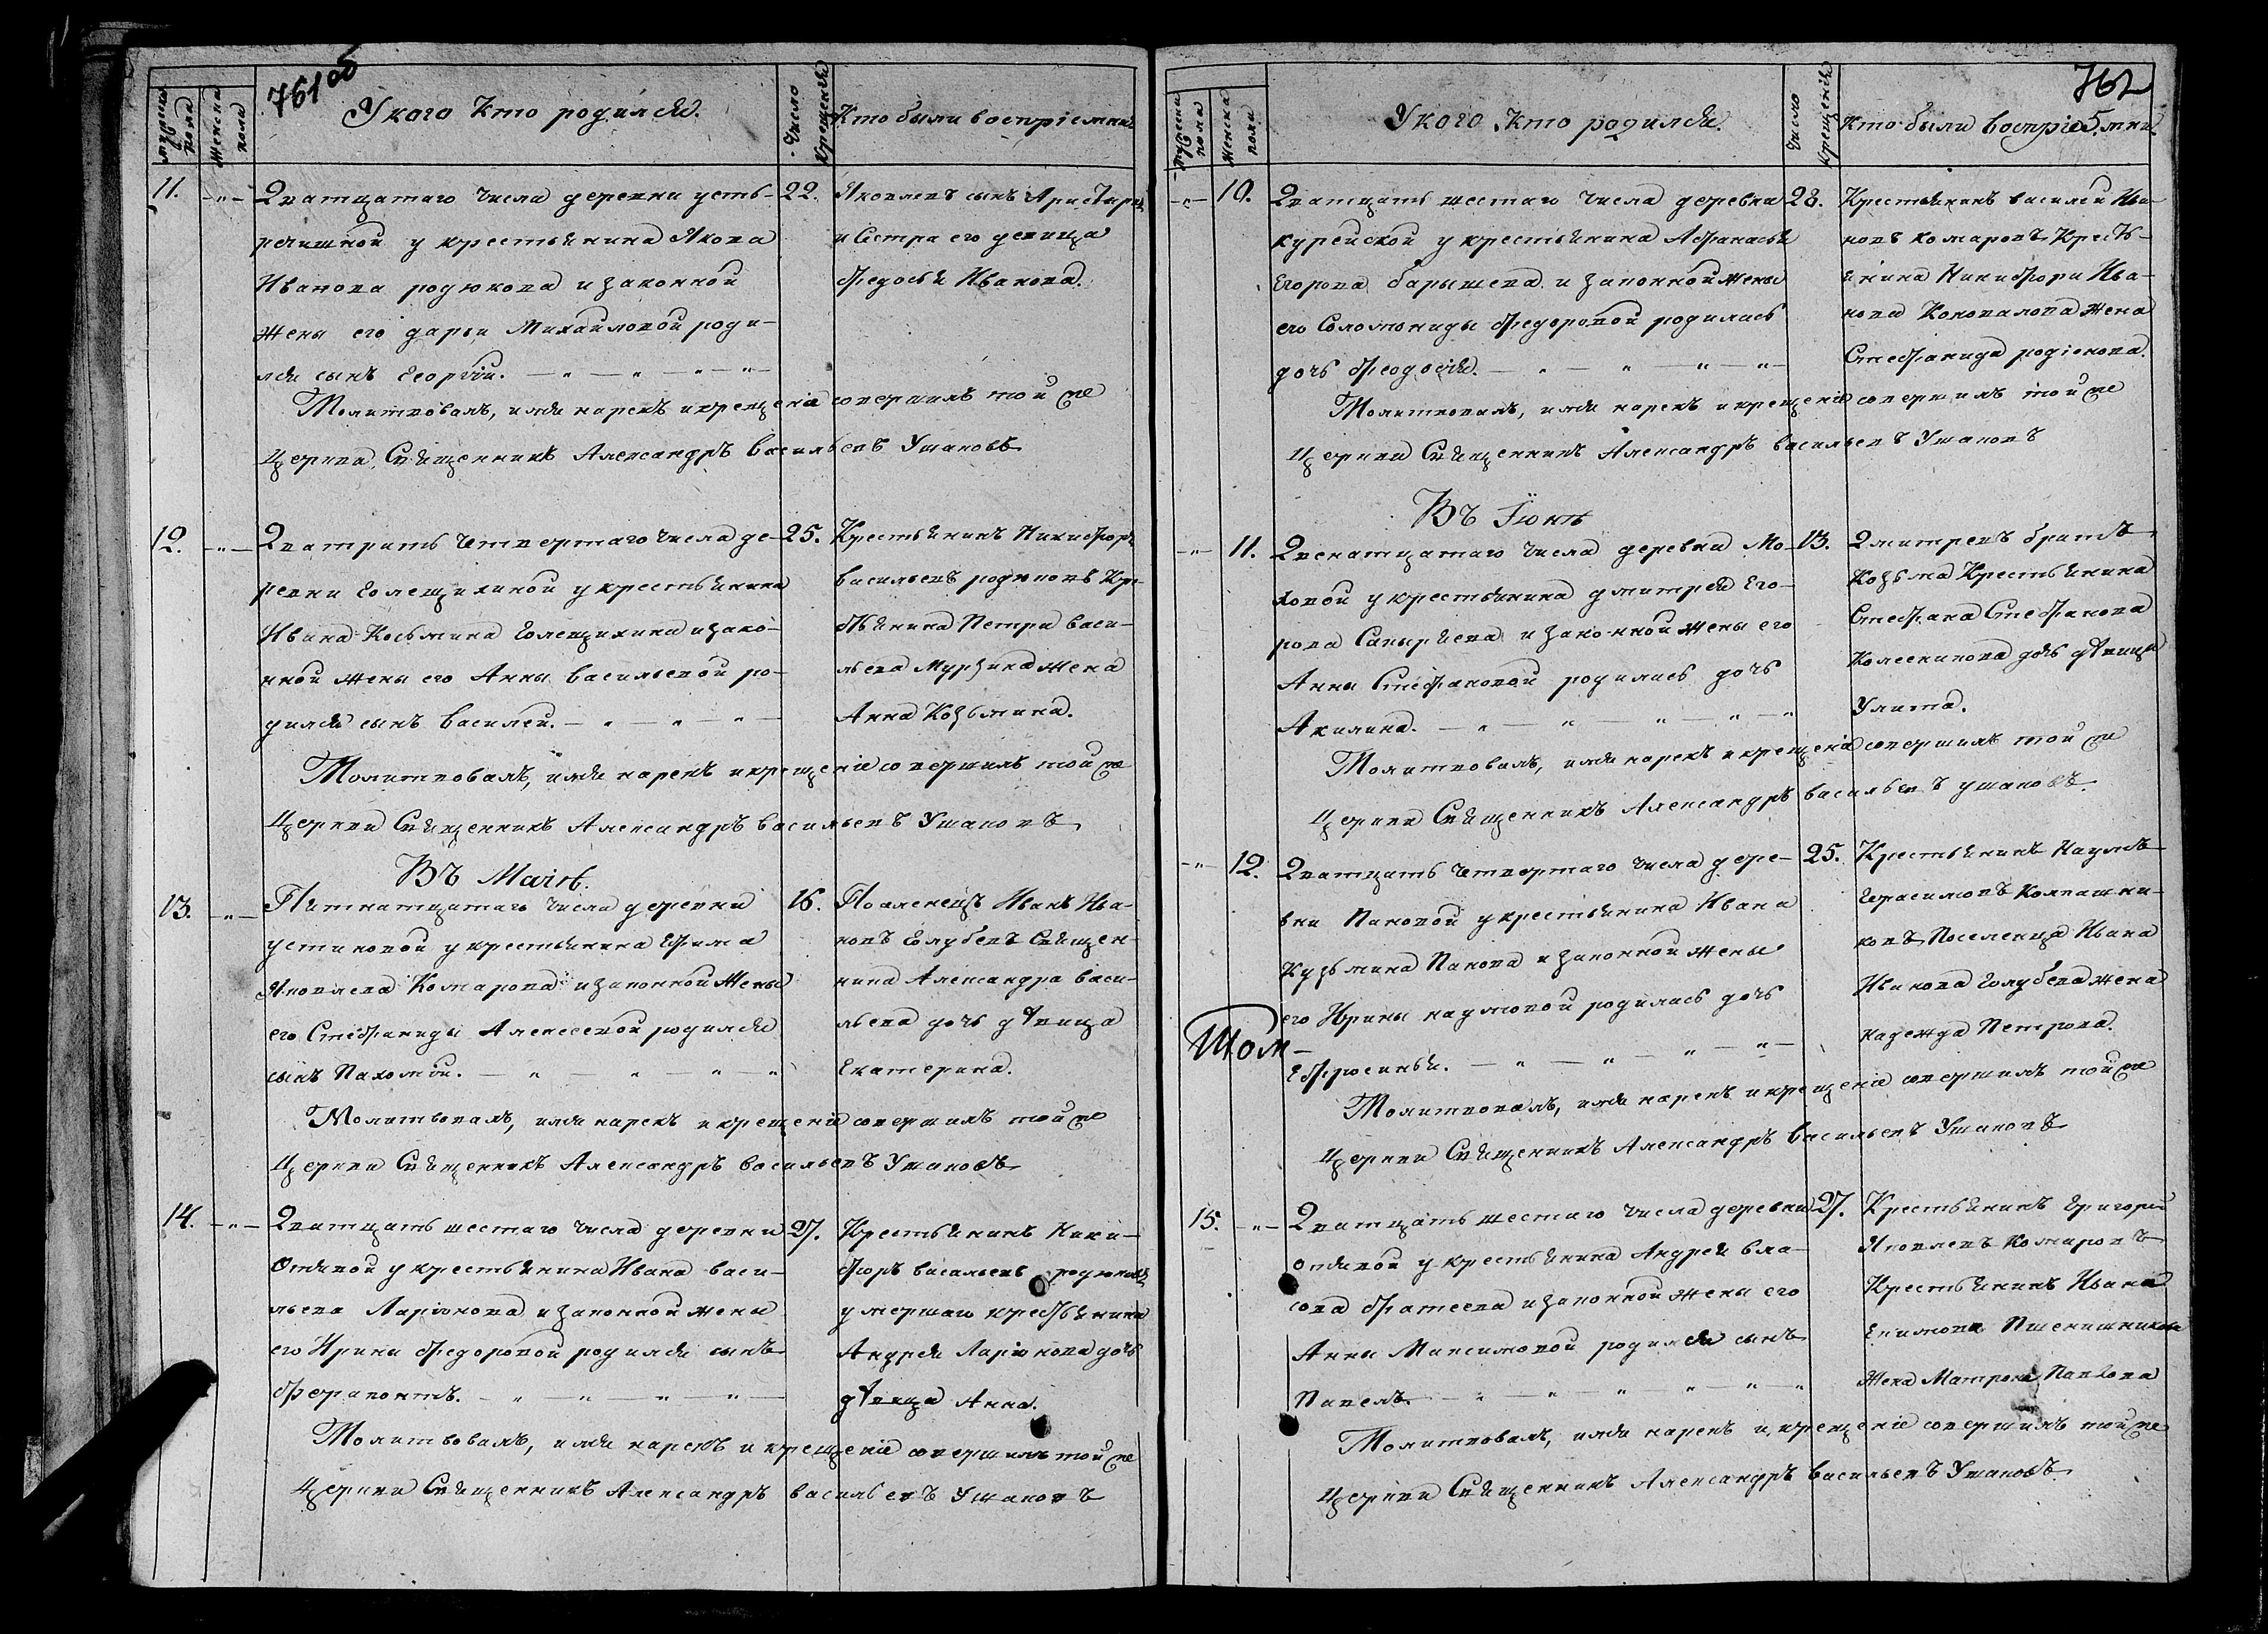 761об
мужеска пола
Женска пола
У кого кто родился.
Число Крещенія
Кто были воспріемник
11. Дватцатаго числа деревни усть-
рѣчишной у крестьянина Якова
Иванова родюкова и законной
жены его дарьи Михайловой роди-
лся сынъ Георгій.
22. Яковлевъ сынъ
и Сестра его девица
Федосья Иванова.
Молитвовалъ, имя нарекъ и крещеніе совершилъ той же
Церкви Священникъ Александръ Васильевъ Ушаковъ
12. Дватцать четвертаго числа де-
ревни Голещихиной у крестьянина
Ивана Косьмина Голещихина и зако-
нной жены его Анны Васильевой ро-
дился сынъ Василей.
25. Крестьянинъ Никифоръ
Васильевъ родюковъ Кре-
стьянина Петра Васи-
льева Мурзина жена
Анна Козьмина.
Молитвовалъ, имя нарекъ и крещеніе совершилъ той же
Церкви Священникъ Александръ Васильевъ Ушаковъ
Въ Маіѣ.
13. Пятнатцатаго числа деревни
устиновой у крестьянина Ефима
Яковлева Комарова и законной жены
его Стефаниды Алексеевой родился
сынъ Пахомій.
16. Поселенецъ Иванъ Ива-
новъ Голубевъ Священ-
ника Александра Васи-
льева дочь дѣвица
Екатерина.
Молитвовалъ, имя нарекъ и крещеніе совершилъ той же
Церкви Священникъ Александръ Васильевъ Ушаковъ
14. Дватцать шестаго числа деревни
Опякой у крестьянина Ивана Васи-
льева Ларіонова и законной жены
его Ирины Федоровой родился сынъ
Ферапонтъ.
27. Крестьянинъ Ники-
форъ Васильевъ родюковъ
умершаго крестьянина
Андрея Ларіонова дочь
дѣвица Анна.
Молитвовалъ, имя нарекъ и крещеніе совершилъ той же
Церкви Священникъ Александръ Васильевъ Ушаковъ
762
мужеска пола
Женска пола
У кого кто родился.
Число Крещенія
Кто были воспріемни
5.
10. Дватцать шестаго числа деревни
курейской у крестьянина Афанасья
Егорова барышева и законной жены
его Соломониды Федоровой родилась
дочь Феодосія.
28. Крестьянинъ Василей Ива-
новъ Комаровъ Кресть-
янина Никифора Ива-
нова Коновалова жена
Стефанида родіонова.
Молитвовалъ, имя нарекъ и крещеніе совершилъ той же
Церкви Священникъ Александръ Васильевъ Ушаковъ
Въ Іюнѣ
11. Двенатцатаго числа деревни Мо-
ховой у крестьянина дмитрея Его-
рова Сапыряева и законной жены его
Анны Стефановой родилась дочь
Акилина.
13. Дмитревъ братъ
Козьма Крестьянина
Стефана Стефанова
Колесникова дочь дѣвица
Улита.
Молитвовалъ, имя нарекъ и крещеніе совершилъ той же
Церкви Священникъ Александръ Васильевъ Ушаковъ
12. Дватцать четвертаго числа дере-
вни Пановой у крестьянина Ивана
Кузьмина Панова и законной жены
его Ирины наумовой родилась дочь
Ефросинья.
25. Крестьянинъ Наумъ
Герасимовъ Колпашни-
ковъ Поселенца Ивана
Иванова Голубева жена
надежда Петрова.
Том-
Молитвовалъ, имя нарекъ и крещеніе совершилъ той же
Церкви Священникъ Александръ Васильевъ Ушаковъ
15. Дватцать шестаго числа деревни
опякой у крестьянина Андрея Вла-
сова Фатеева и законной жены его
Анны Максимовой родился сынъ
Павелъ.
27. Крестьянинъ Григорей
Яковлевъ Комаровъ
Крестьянинъ Ивана
Екимова Пшенишникова
Жена Матрона Павлова
Молитвовалъ, имя нарекъ и крещеніе совершилъ той же
Церкви Священникъ Александръ Васильевъ Ушаковъ